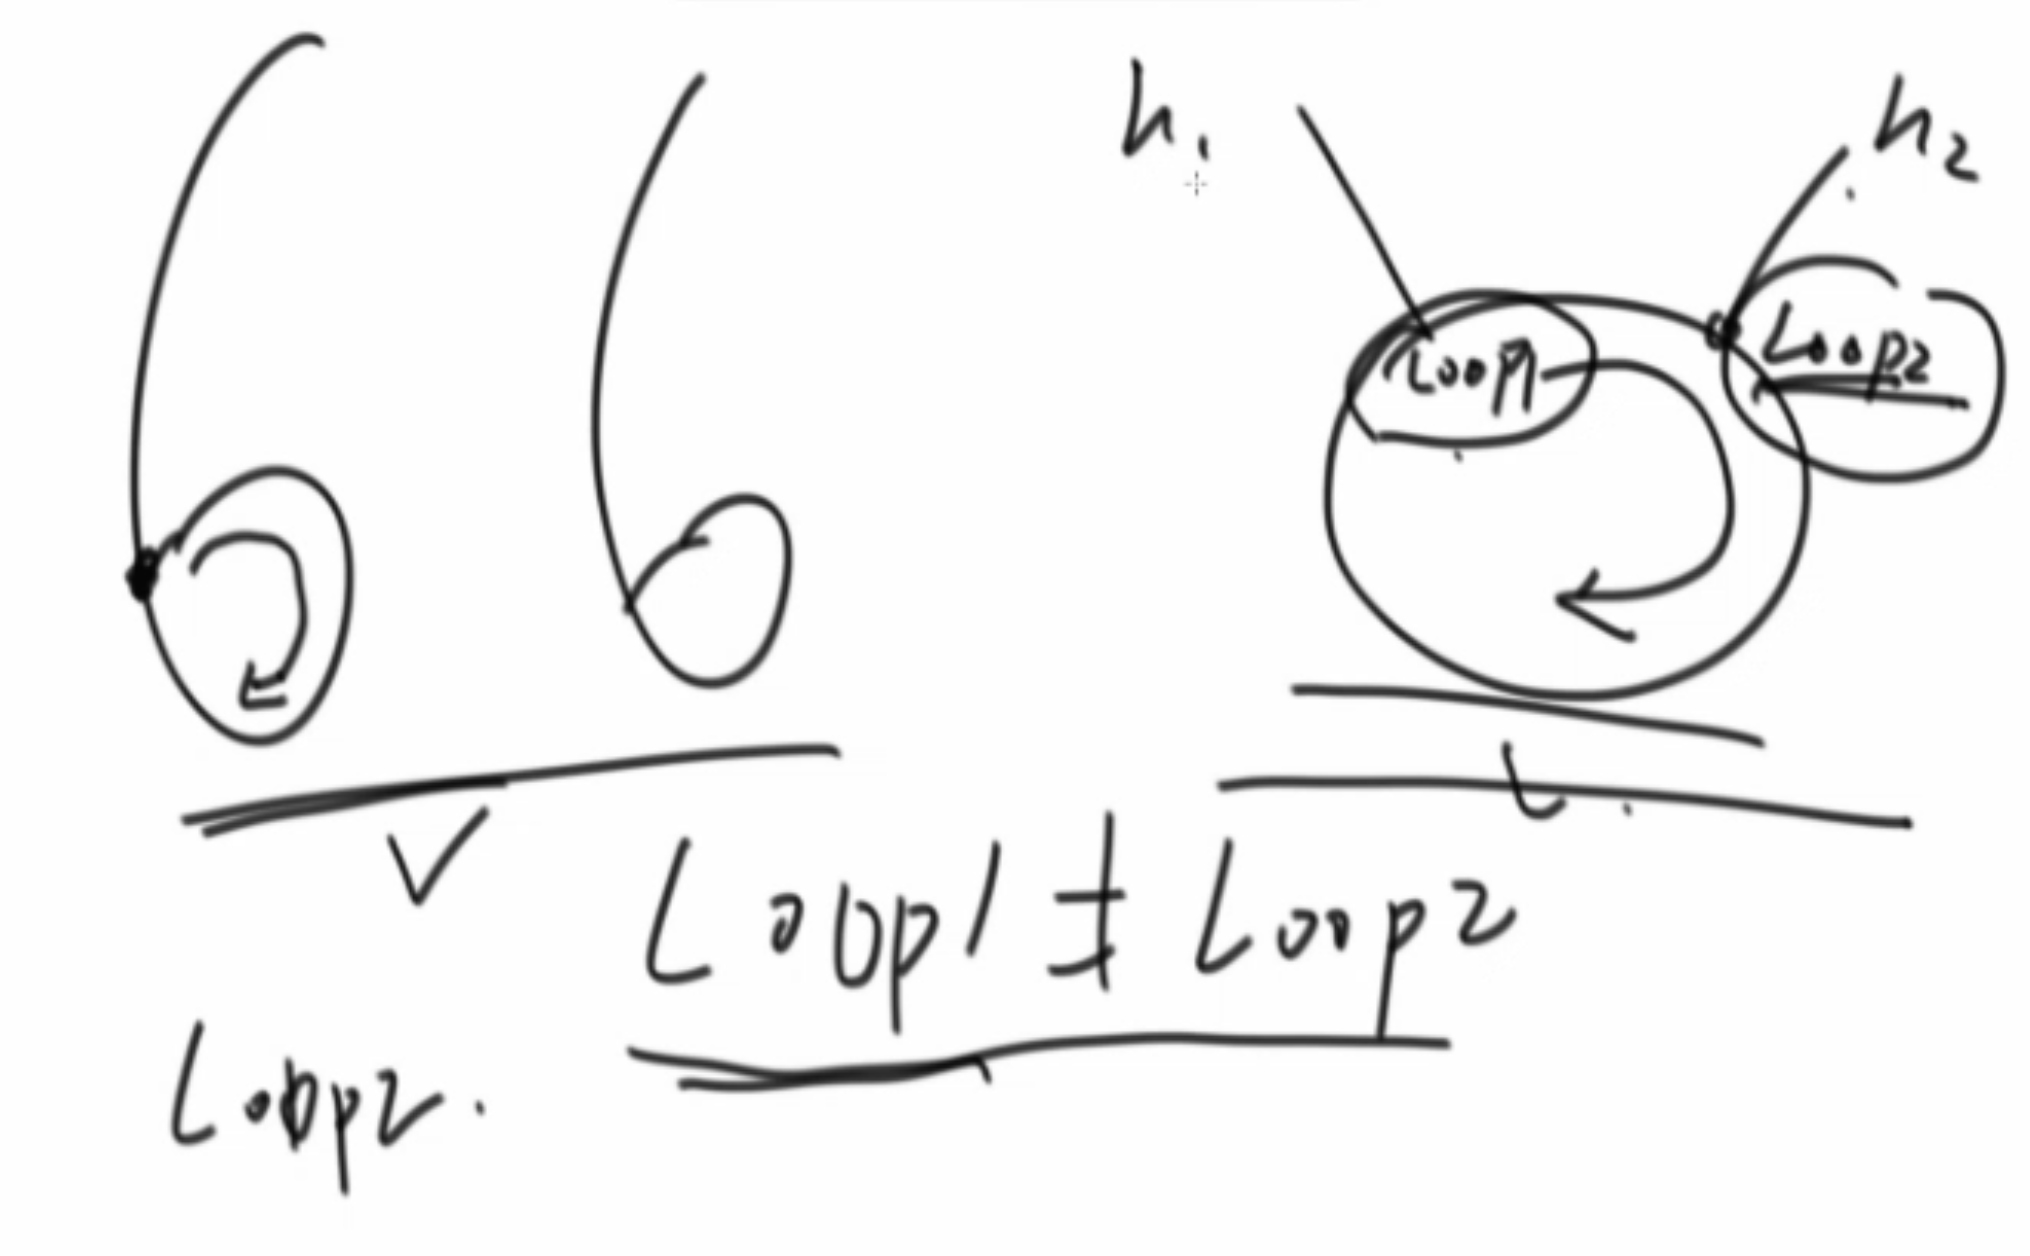 h1
h2
Loop1
Loop2
Loop1 ≠ Loop2
Loop2.